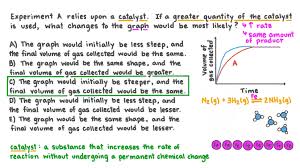 Experiment A relies upon a catalyst. If a greater quantity of the catalyst
is used, what changes to the graph would be most likely?
↑ rate
same amount
of product
A) The graph would initially be less steep, and
the final volume of gas collected would be the same.
B) The graph would be the same shape, and the
final volume of gas collected would be greater.
C) The graph would initially be steeper, and the
final volume of gas collected would be the same.
D) The graph would initially be less steep, and
the final volume of gas collected would be lesser.
E) The graph would be the same shape, and the
final volume of gas collected would be lesser.
Volume of
gas collected
A
Time
Fe
N₂(g) + 3H₂(g) ⇌ 2NH₃(g)
catalyst: a substance that increases the rate of
reaction without undergoing a permanent chemical change